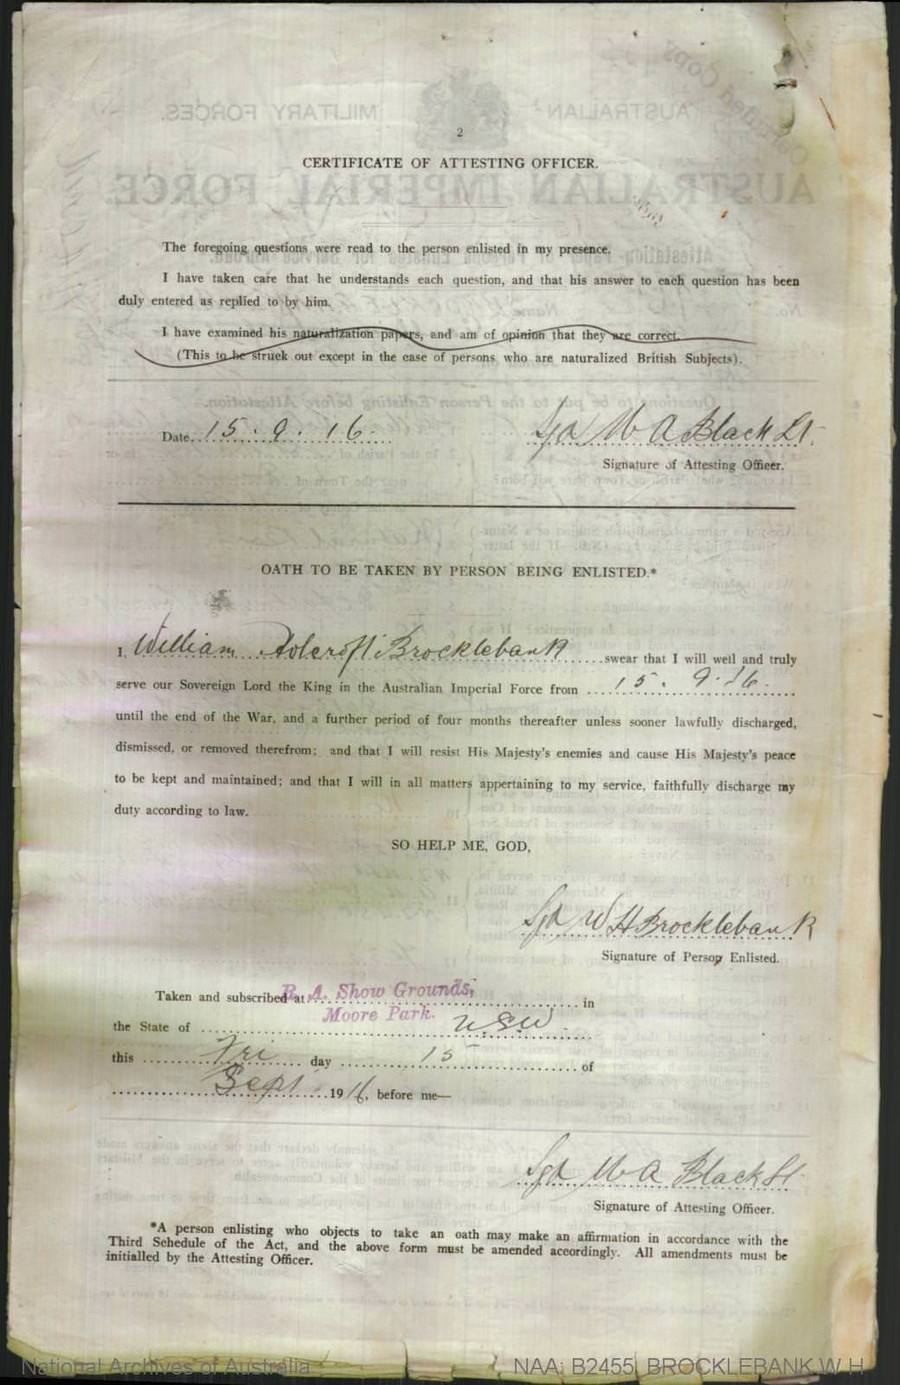 2
CERTIFICATE OF ATTESTING OFFICER.
The foregoing questions were read to the person enlisted in my presence.
I have taken care that he understands each question, and that his answer to each question has been
duly entered as replied to by him.
I have examined his naturalization papers, and am of opinion that they are correct.
(This to be struck out except in the case of persons who are naturalized British Subjects).
Date 15.9.16 Sgd W A Black Lt.
Signature of Attesting Officer.
OATH TO BE TAKEN BY PERSON BEING ENLISTED.*
I, William Holcroft Brocklebank swear that I will well and truly
serve our Sovereign Lord the King in the Australian Imperial Force from 15.9.16.
until the end of the War, and a further period of four months thereafter unless sooner lawfully discharged,
dismissed, or removed therefrom; and that I will resist His Majesty's enemies and cause His Majesty's peace
to be kept and maintained; and that I will in all matters appertaining to my service, faithfully discharge my
duty according to law.
SO HELP ME, GOD,
Sgd W H Brocklebank
Signature of Person Enlisted.
Taken and subscribed at R. A. Show Grounds, in
Moore Park.
the State of NSW
this Fri day 15 of
Sept 1916, before me—
Sgd W A Black Lt
Signature of Attesting Officer.
*A person enlisting who objects to take an oath may make an affirmation in accordance with the
Third Schedule of the Act, and the above form must be amended accordingly. All amendments must be
initialled by the Attesting Officer.
National Archives of Australia NAA: B2455, BROCKLEBANK W H